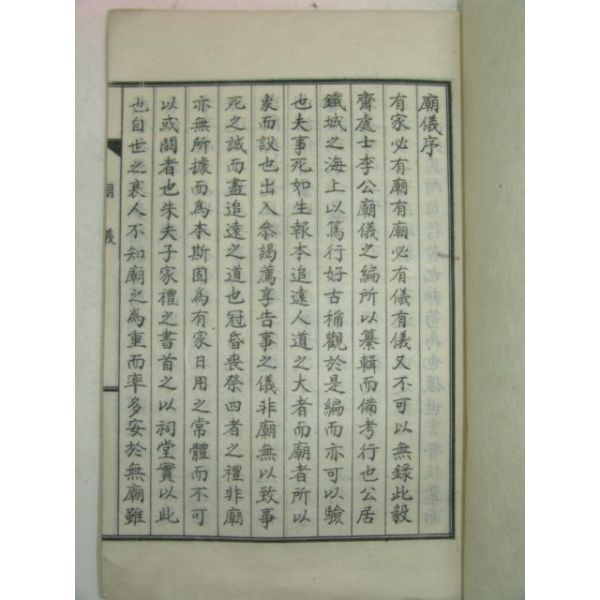 廟儀序
有家必有廟有廟必有儀有儀又不可以無錄此毅
齋處士李公廟儀之編所以纂輯而備考行也公居
鐵城之海上以篤行好古稱觀於是編而亦可以驗
也夫事死如生報本追遠人道之大者而廟者所以
象而設也出入參謁薦享告事之儀非廟無以致事
死之誠而盡追遠之道也冠昏喪祭四者之禮非廟
亦無所據而爲本斯固爲有家日用之常體而不可
以或闕者也朱夫子家禮之書首之以祠堂實以此
也自世之衰人不知廟之爲重而率多安於無廟雖
廟儀